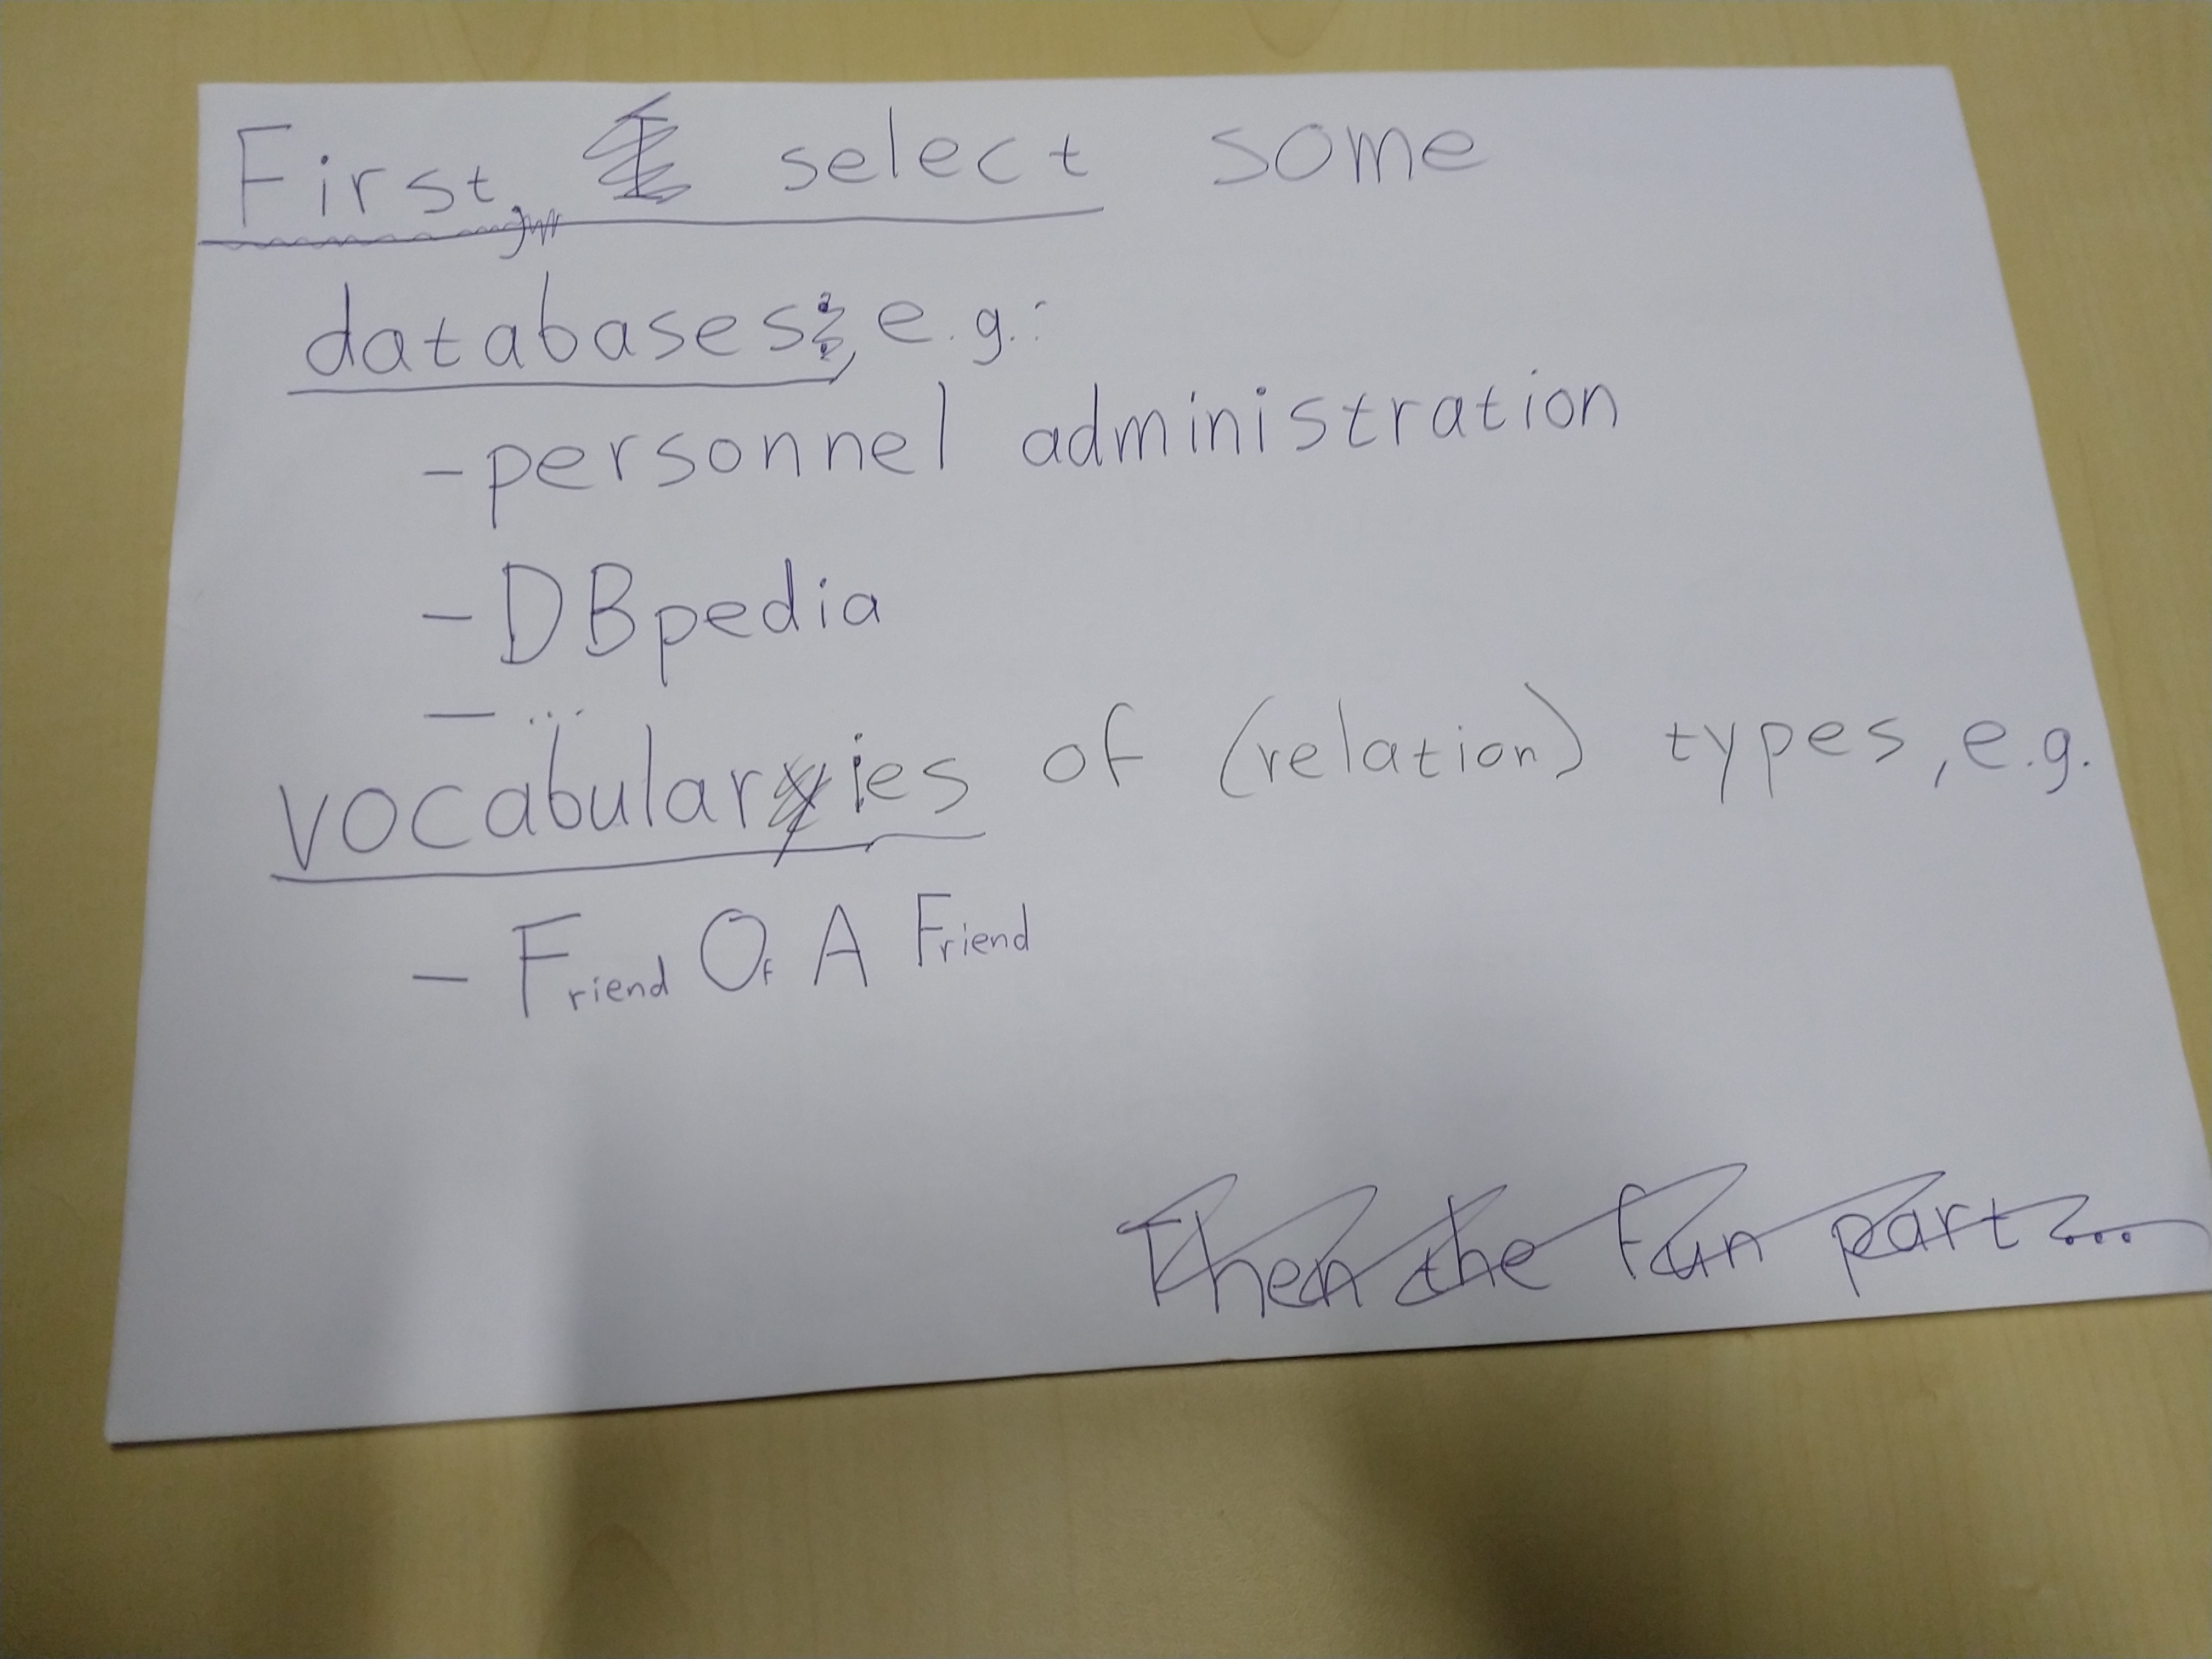 First, select some
databases, e.g.:
- personnel administration
- DBpedia
- ...
vocabularies of (relation) types, e.g.
- Friend Of A Friend
Then the fun part...